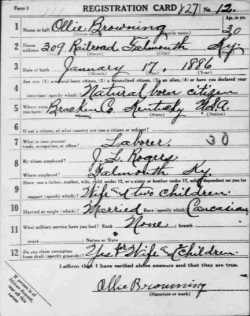 Form 1
REGISTRATION CARD
No. 12
1 Name in full Ollie Browning
Age, in yrs. 30
2 Home address 309 Railroad Falmouth Ky
3 Date of birth January 17, 1886
4 Are you (1) a natural-born citizen, (2) a naturalized citizen, (3) an alien, (4) or have you declared your intention (specify which)? Natural born citizen
5 Where were you born? Bracken Co. Kentucky USA
6 If not a citizen, of what country are you a citizen or subject?
7 What is your present trade, occupation, or office? Laborer 30
8 By whom employed? J. L. Rogers
Where employed? Falmouth Ky
9 Have you a father, mother, wife, child under 12, or a sister or brother under 12, solely dependent on you for support (specify which)? Wife & two children
10 Married or single (which)? Married Race (specify which)? Caucasian
11 What military service have you had? Rank None ; branch
years Nation or State
12 Do you claim exemption from draft (specify grounds)? Yes Wife & Children
I affirm that I have verified above answers and that they are true.
Ollie Browning
(Signature or mark)